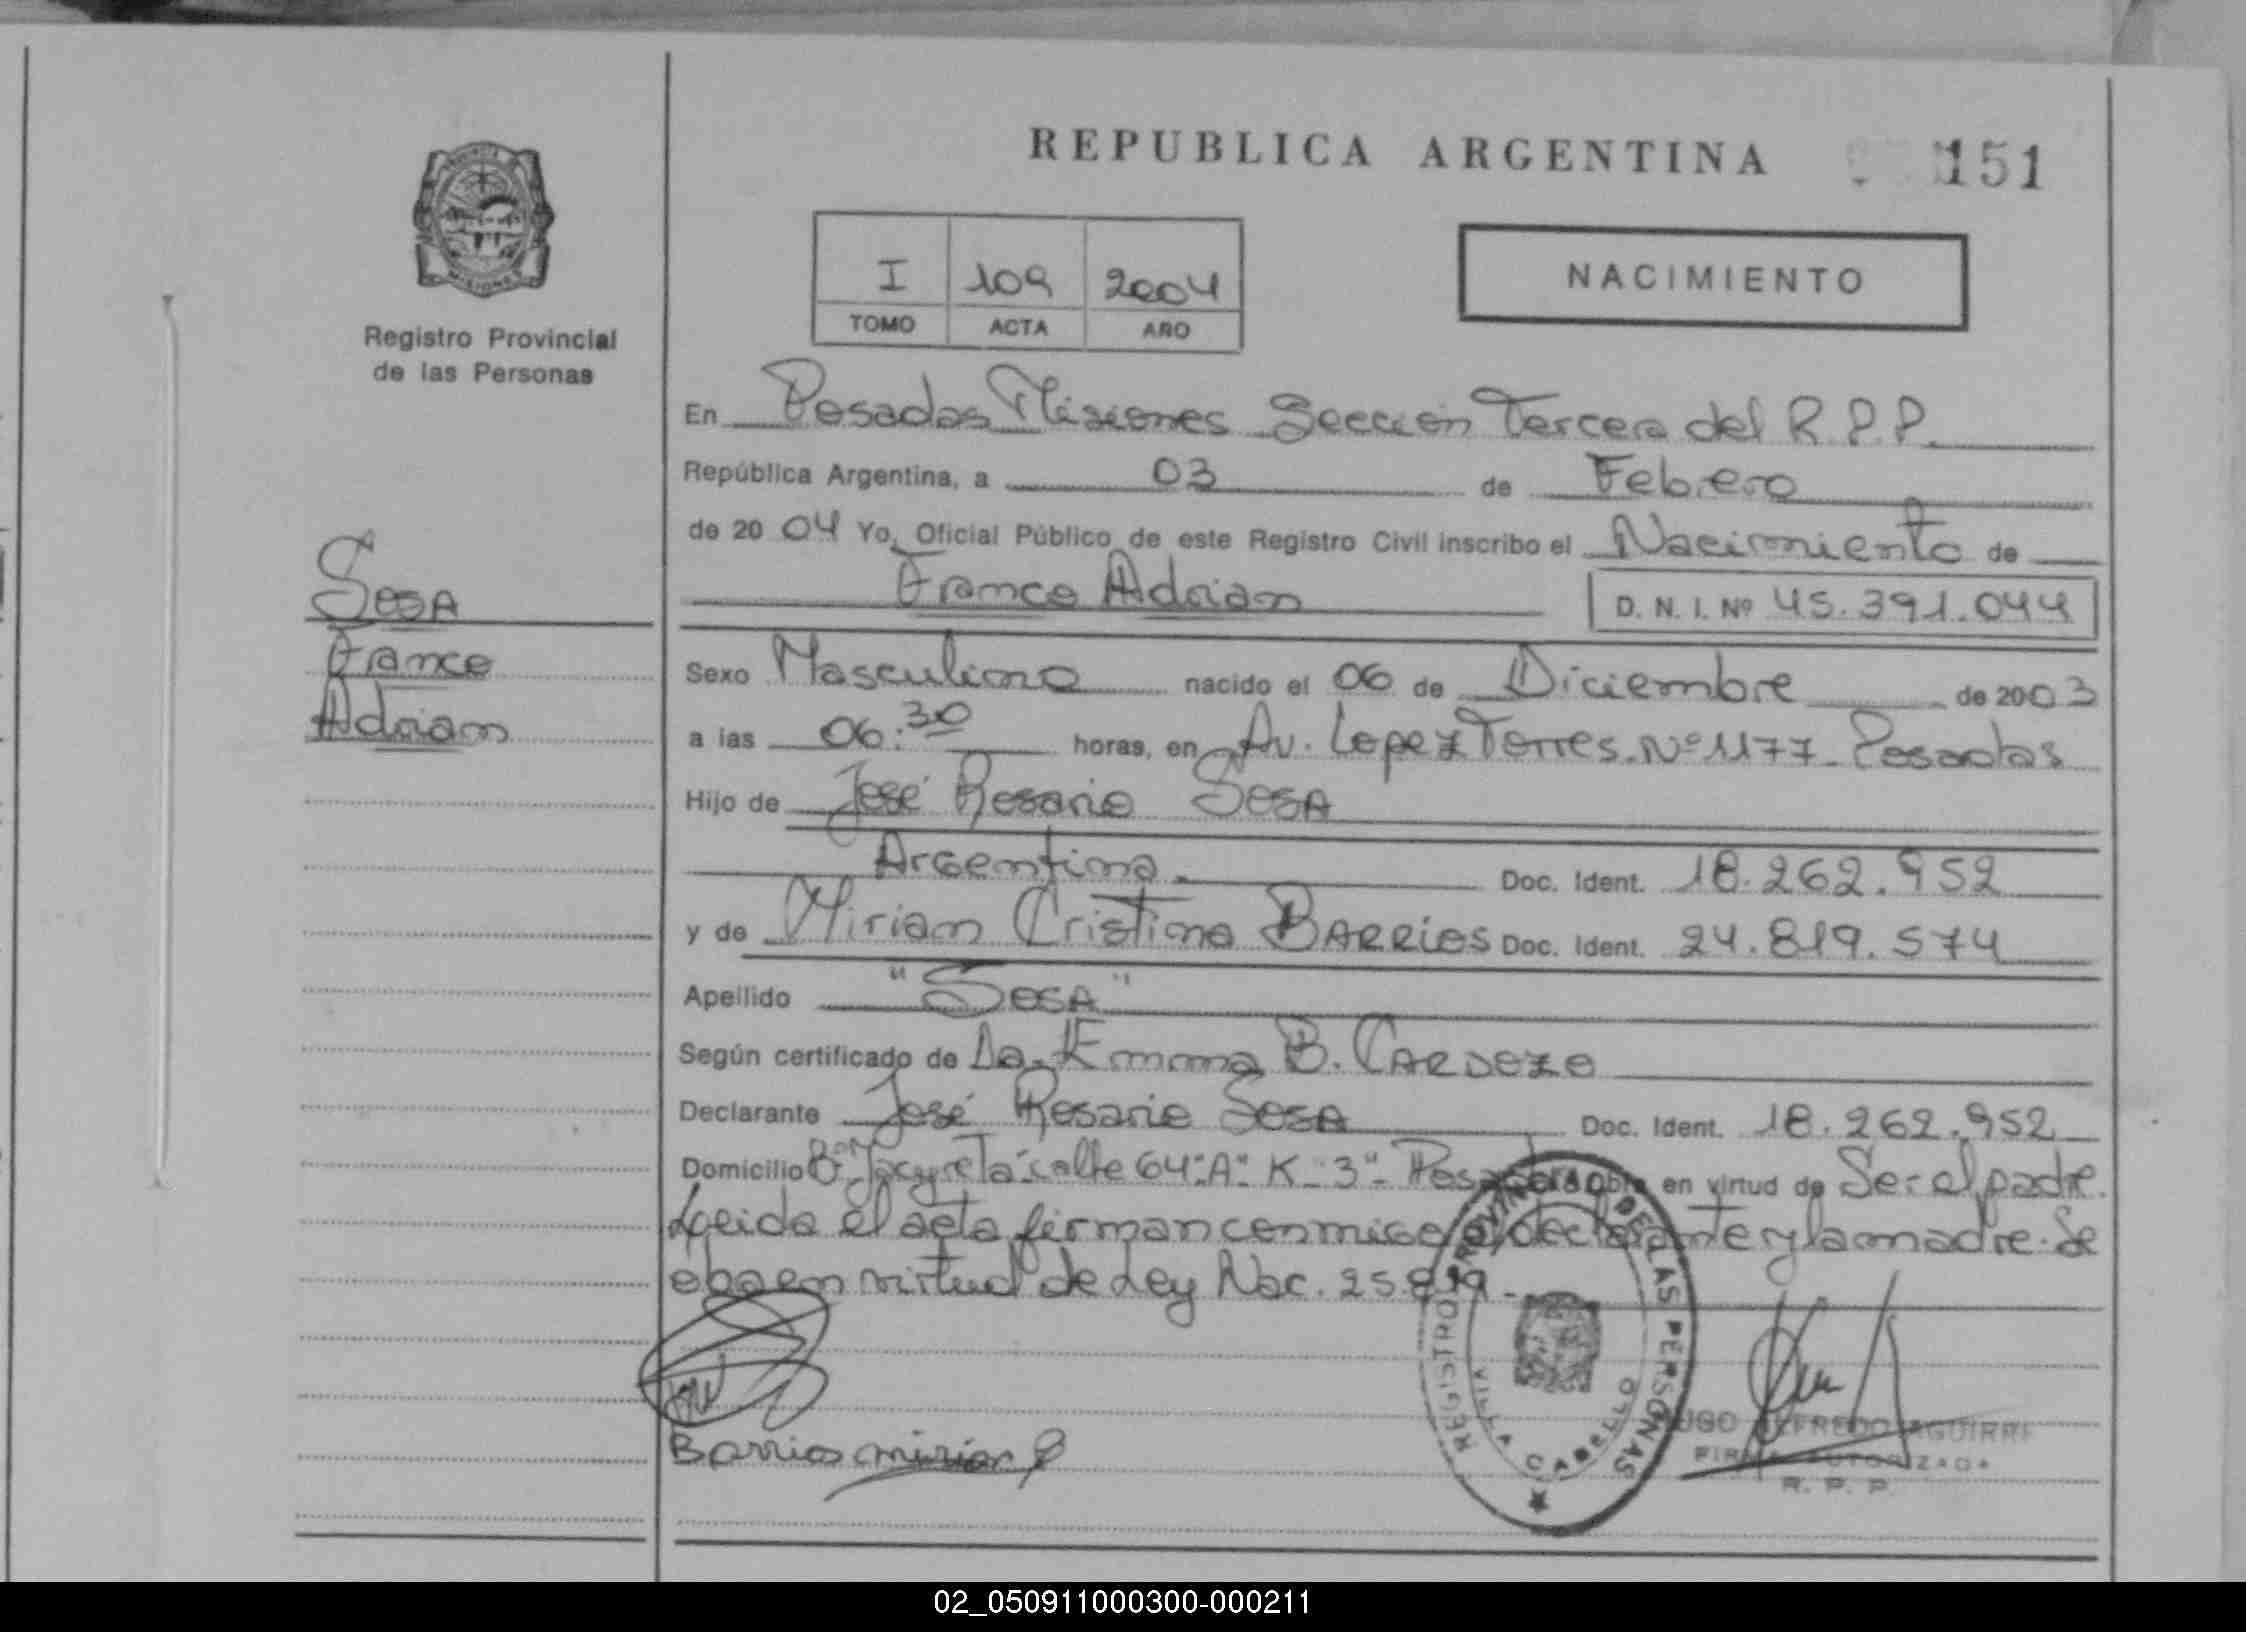 REPUBLICA ARGENTINA 151
I 109 2004
TOMO ACTA AÑO
NACIMIENTO
MISIONES
Registro Provincial
de las Personas
Sesa
Franco
Adrian
En Posadas Misiones Sección Tercera del R.P.P.
República Argentina, a 03 de Febrero
de 2004 Yo, Oficial Público de este Registro Civil inscribo el Nacimiento de
Franco Adrian D. N. I. Nº 45.391.044
Sexo Masculino nacido el 06 de Diciembre de 2003
a las 06:30 horas, en Av. Lopez Torres Nº 1177 - Posadas
Hijo de José Rosario SESA
Argentina. Doc. Ident. 18.262.952
y de Miriam Cristina BARRIOS Doc. Ident. 24.819.574
Apellido "SESA"
Según certificado de Da. Emma B. CARDOZO
Declarante José Rosario SESA Doc. Ident. 18.262.952
Domicilio Bº Yacyretá calle 64 "A" K - 3 - Posadas Obra en virtud de Ser el padre.
Leida el acta firman conmigo el declarante y la madre. Se
oba en virtud de Ley Nac. 25.819.-
Barrios Mirian
REGISTRO PROVINCIAL DE LAS PERSONAS
VILLA CABELLO
HUGO ALFREDO AGUIRRE
FIRMA AUTORIZADA
R. P. P.
02_050911000300-000211